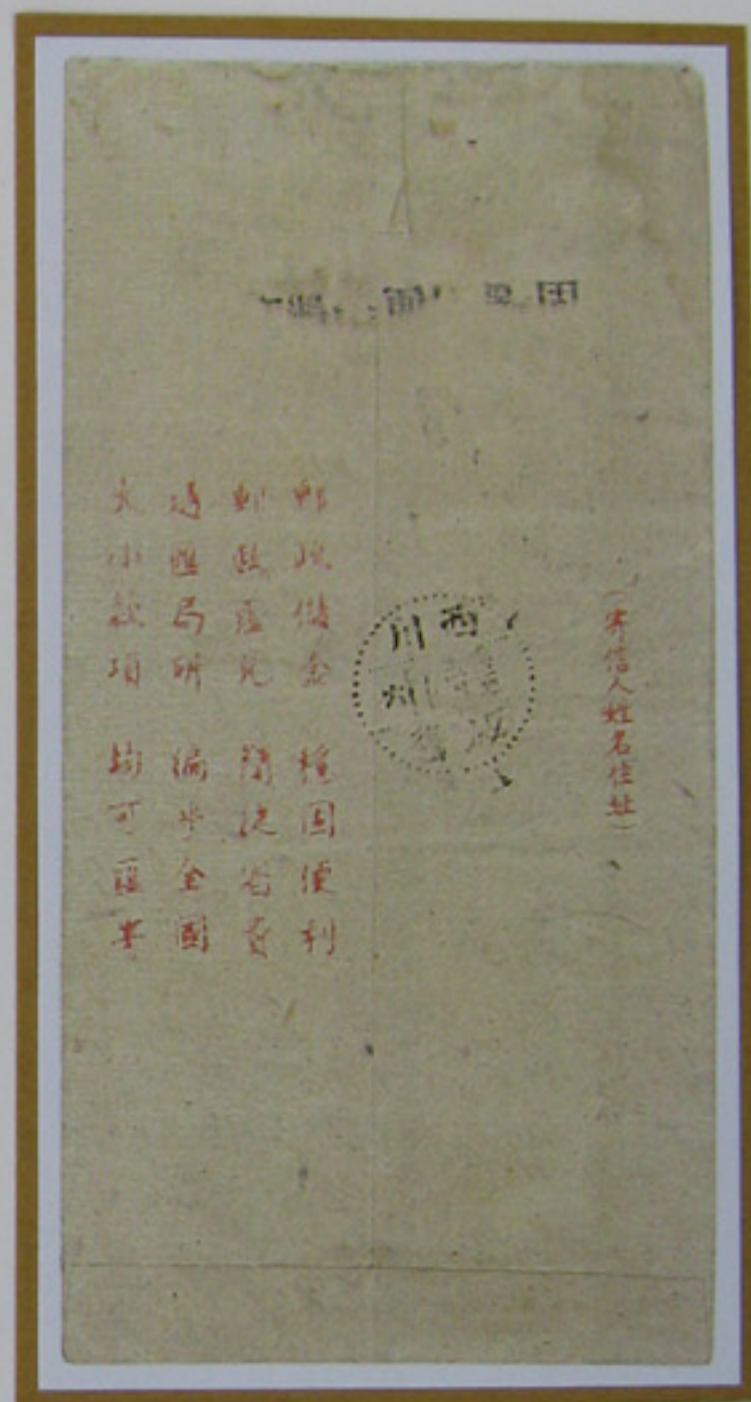 （寄信人姓名住址）
西川
州
郵政儲金 穩固便利
郵政匯兌 簡捷省費
通匯局所 徧乎全國
大小款項 均可匯寄